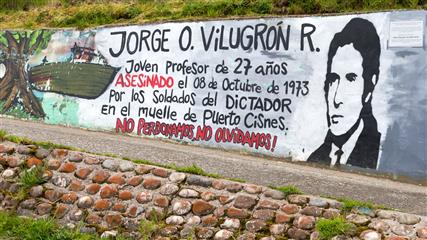 JORGE O. ViLUGRÓN R.
JOVEN PROFESOR DE 27 AÑOS
ASESINADO EL 08 DE OCTUBRE DE 1973
POR LOS SOLDADOS DEL DICTADOR
EN EL MUELLE DE PUERTO CISNES.
NO PERDONAMOS, NO OLVIDAMOS!